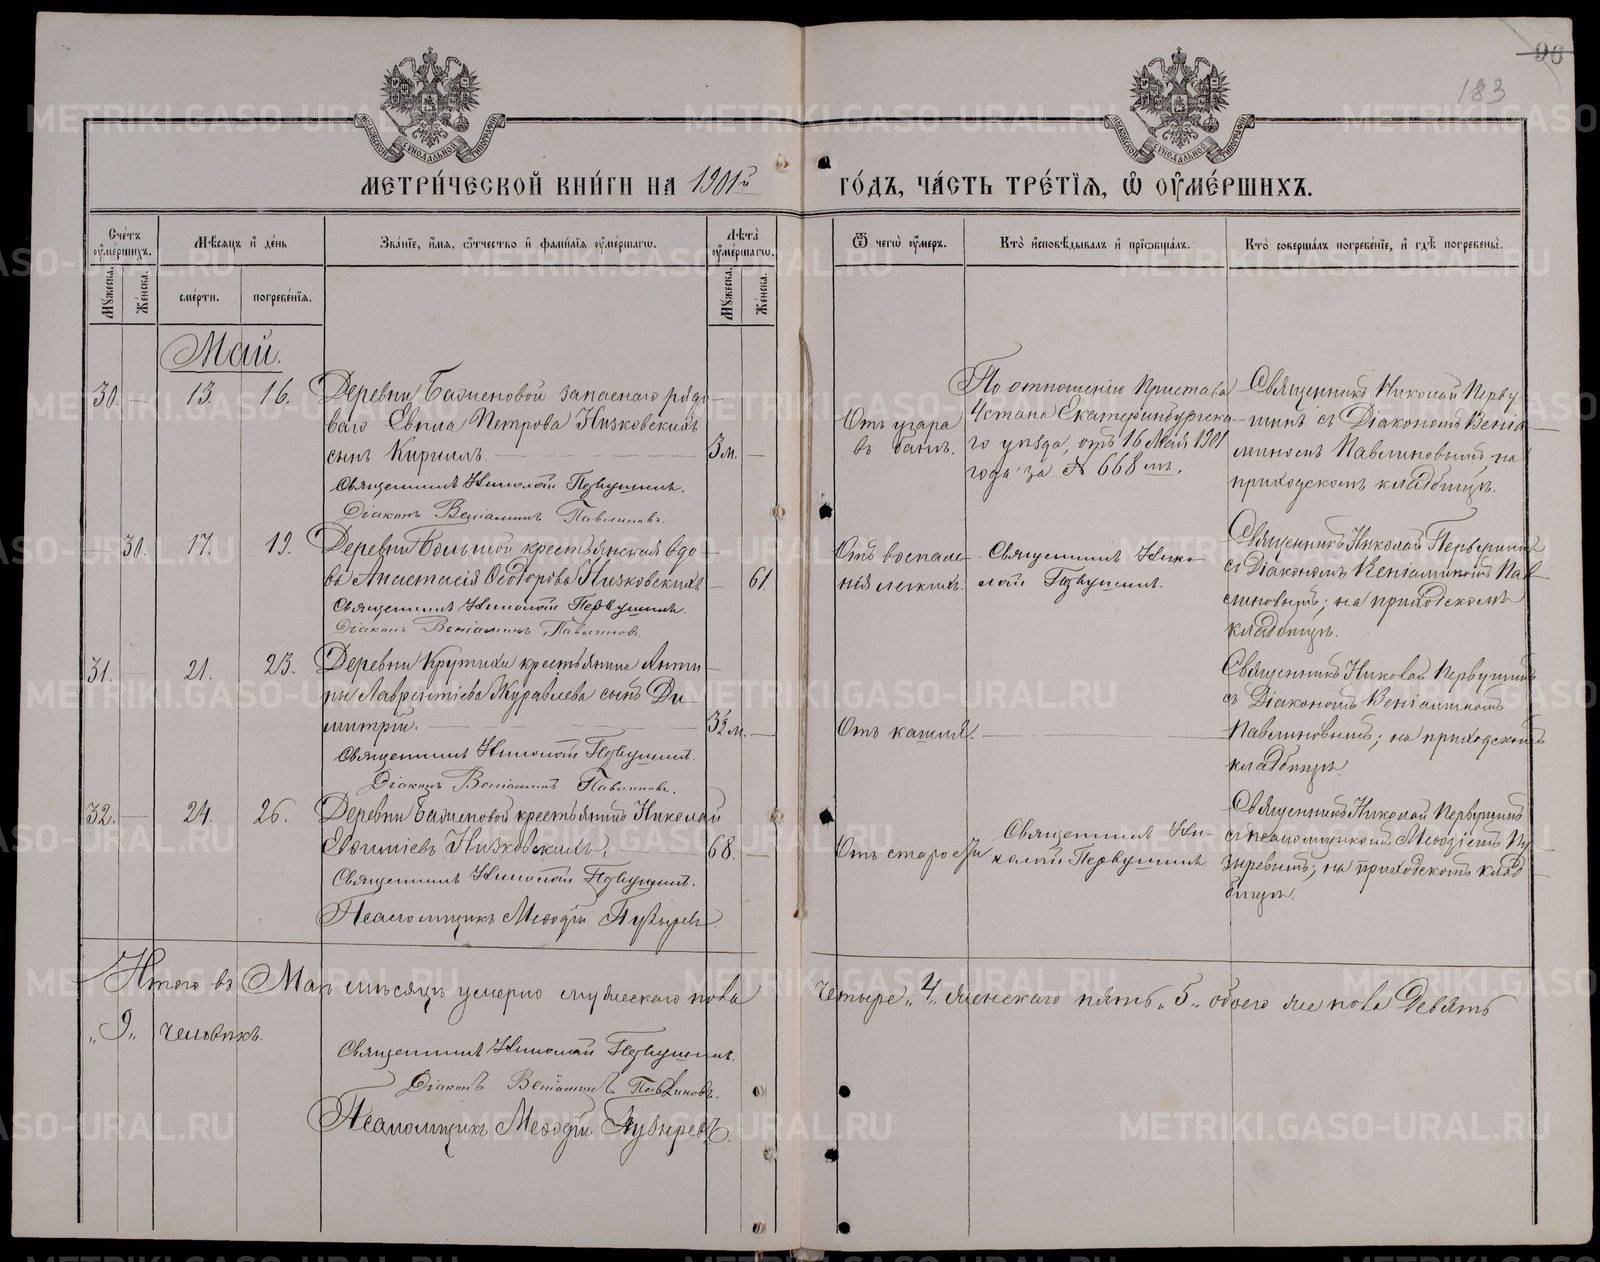 96
183
МЕТРИ́ЧЕСКОЙ КНИ́ГИ НА 1901й ГО́ДЪ, ЧА́СТЬ ТРЕ́ТІЯ, Ѽ ОУМЕ́РШИХЪ.
Сче́тъ оуме́ршихъ.
Мꙋжеска.
Же́нска.
Мѣсяцъ и де́нь
сме́рти.
погребе́нія.
Зва́ніе, и́мя, о́тчество и фами́лія оуме́ршагѡ.
Лѣта̀ оуме́ршагѡ.
Мꙋжеска.
Же́нска.
Ѿ чегѡ̀ оу́меръ.
Кто̀ исповѣ́дывалъ и пріѡбща́лъ.
Кто̀ соверша́лъ погребе́ніе, и гдѣ̀ погребены̀.
Май.
30. — 13. 16.
Деревни Баженовой запаснаго рядо-
ваго Евѳима Петрова Низковскихъ
сынъ Кириллъ.
3 м.
Священникъ Николай Первушинъ.
Діаконъ Веніаминъ Павлиновъ.
Отъ угара
въ банѣ.
По отношенію Пристава
4 стана Екатеринбургска-
го уѣзда, отъ 16 Мая 1901
года за № 668 мъ.
Священникъ Николай Перву-
шинъ съ Діакономъ Веніа-
миномъ Павлиновымъ на
приходскомъ кладбищѣ.
— 30. 17. 19.
Деревни Большой крестьянская вдо-
ва Анастасія Ѳеодорова Низковскихъ
61.
Священникъ Николай Первушинъ.
Діаконъ Веніаминъ Павлиновъ.
Отъ воспале-
нія легкихъ.
Священникъ Нико-
лай Первушинъ.
Священникъ Николай Первушинъ
съ Діакономъ Веніаминомъ Пав-
линовымъ; на приходскомъ
кладбищѣ.
31. — 21. 23.
Деревни Крутихи крестьянина Анти-
пы Лаврентіева Журавлева сынъ Ди-
митрій.
3½ м.
Священникъ Николай Первушинъ.
Діаконъ Веніаминъ Павлиновъ.
Отъ кашля.
Священникъ Николай Первушинъ
съ Діакономъ Веніаминомъ
Павлиновымъ; на приходскомъ
кладбищѣ.
32. — 24. 26.
Деревни Баженовой крестьянинъ Николай
Евѳиміевъ Низковскихъ.
68.
Священникъ Николай Первушинъ.
Псаломщикъ Меѳодій Пузыревъ.
Отъ старости
Священникъ Ни-
колай Первушинъ
Священникъ Николай Первушинъ
съ псаломщикомъ Меѳодіемъ Пу-
зыревымъ; на приходскомъ клад-
бищѣ.
Итого въ Маѣ мѣсяцѣ умерло мужескаго пола четыре „4„ женскаго пять „5„ обоего же пола девять
„9„ человѣкъ.
Священникъ Николай Первушинъ.
Діаконъ Веніаминъ Павлиновъ.
Псаломщикъ Меѳодій Пузыревъ.
METRIKI.GASO-URAL.RU